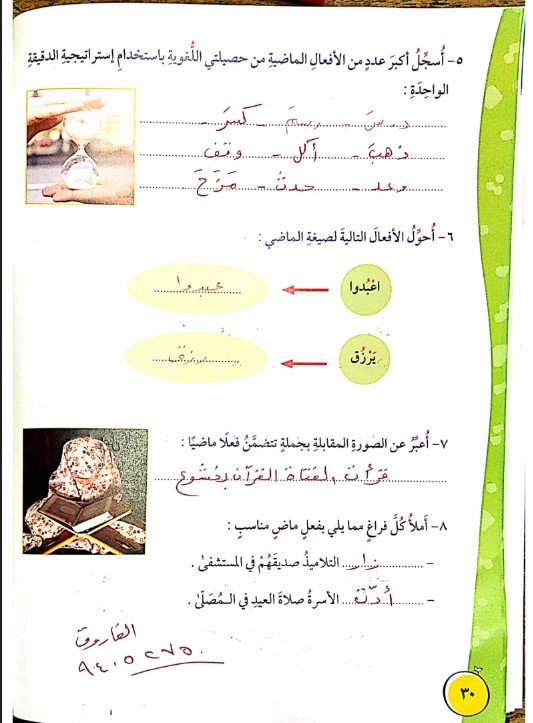 ٥- أُسجِّلُ أكبرَ عددٍ من الأفعال الماضيةِ من حصيلتي اللُّغويةِ باستخدامِ إستراتيجيةِ الدقيقةِ
الواحِدَةِ :
درسَ - رسمَ - كسرَ -
ذهبَ - أكل - وقف
وعد - حدث - مَزَحَ
٦- أُحوِّلُ الأفعالَ التاليةَ لصيغةِ الماضي :
اعْبُدوا
عبدوا
يَرْزُق
٧- أُعبِّرُ عن الصورةِ المقابلةِ بجملةٍ تتضمَّنُ فعلًا ماضيًا :
قرأت الفتاة القرآن بخشوع
٨- أملأُ كُلَّ فراغٍ مما يلي بفعلٍ ماضٍ مناسبٍ :
- زار التلاميذُ صديقَهُمْ في المستشفى .
- أدّت الأسرةُ صلاةَ العيدِ في الـمُصَلّى .
الفاروق
٩٤٠٥٢٧٥٠
٣٠